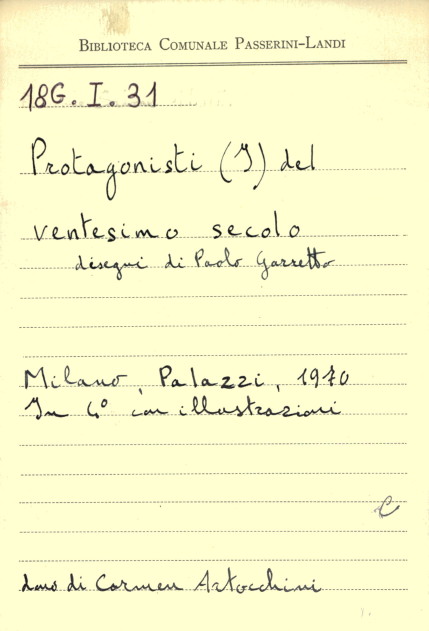 BIBLIOTECA COMUNALE PASSERINI-LANDI
18G. I. 31
Protagonisti (I) del
ventesimo secolo
disegni di Paolo Garretto
Milano, Palazzi, 1970
In 4° con illustrazioni
C
dono di Carmen Artocchini